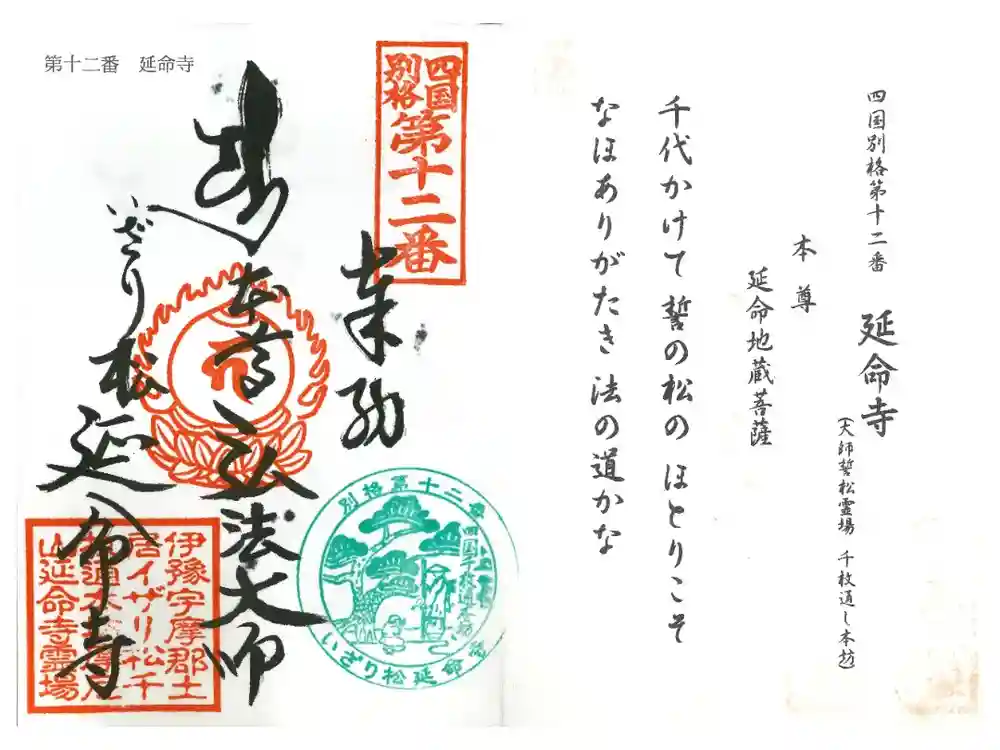 四国別格第十二番
延命寺
(大師誓松霊場 千枚通し本坊)
本尊
延命地蔵菩薩
千代かけて誓の松のほとりこそ
なほありがたき法の道かな
第十二番 延命寺
四国
別格
第十二番
奉納
本尊弘法大師
いざり松
延命寺
別格第十二番
四国千枚通本家
いざり松延命
伊豫宇摩郡土
居イザリ松千
山延命寺霊場